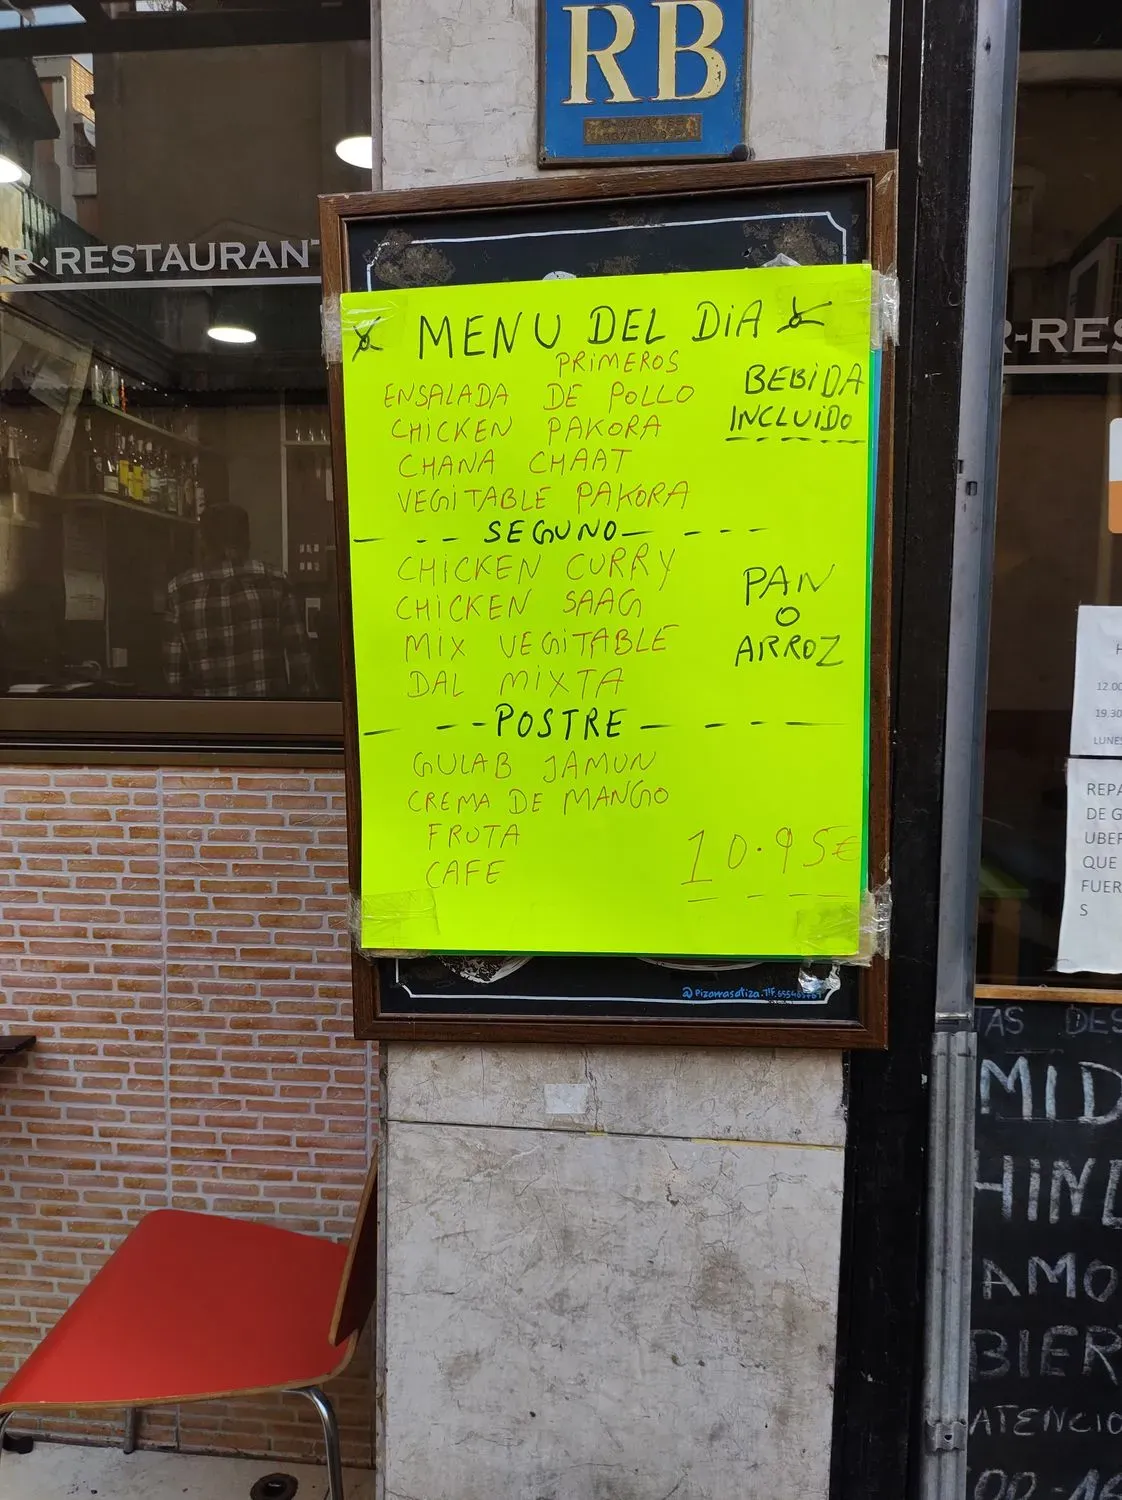 RB
R·RESTAURANT
MENU DEL DIA
PRIMEROS
ENSALADA DE POLLO
CHICKEN PAKORA
CHANA CHAAT
VEGITABLE PAKORA
BEBIDA
INCLUIDO
SEGUNO
CHICKEN CURRY
CHICKEN SAAG
MIX VEGITABLE
DAL MIXTA
PAN
O
ARROZ
POSTRE
GULAB JAMUN
CREMA DE MANGO
FRUTA
CAFE
10.95€
@Pizarrasatiza.
R-RES
12.00
19.30
LUNES
REPA
DE G
UBER
QUE
FUER
S
TAS DES
MID
HIND
AMO
BIER
ATENCIO